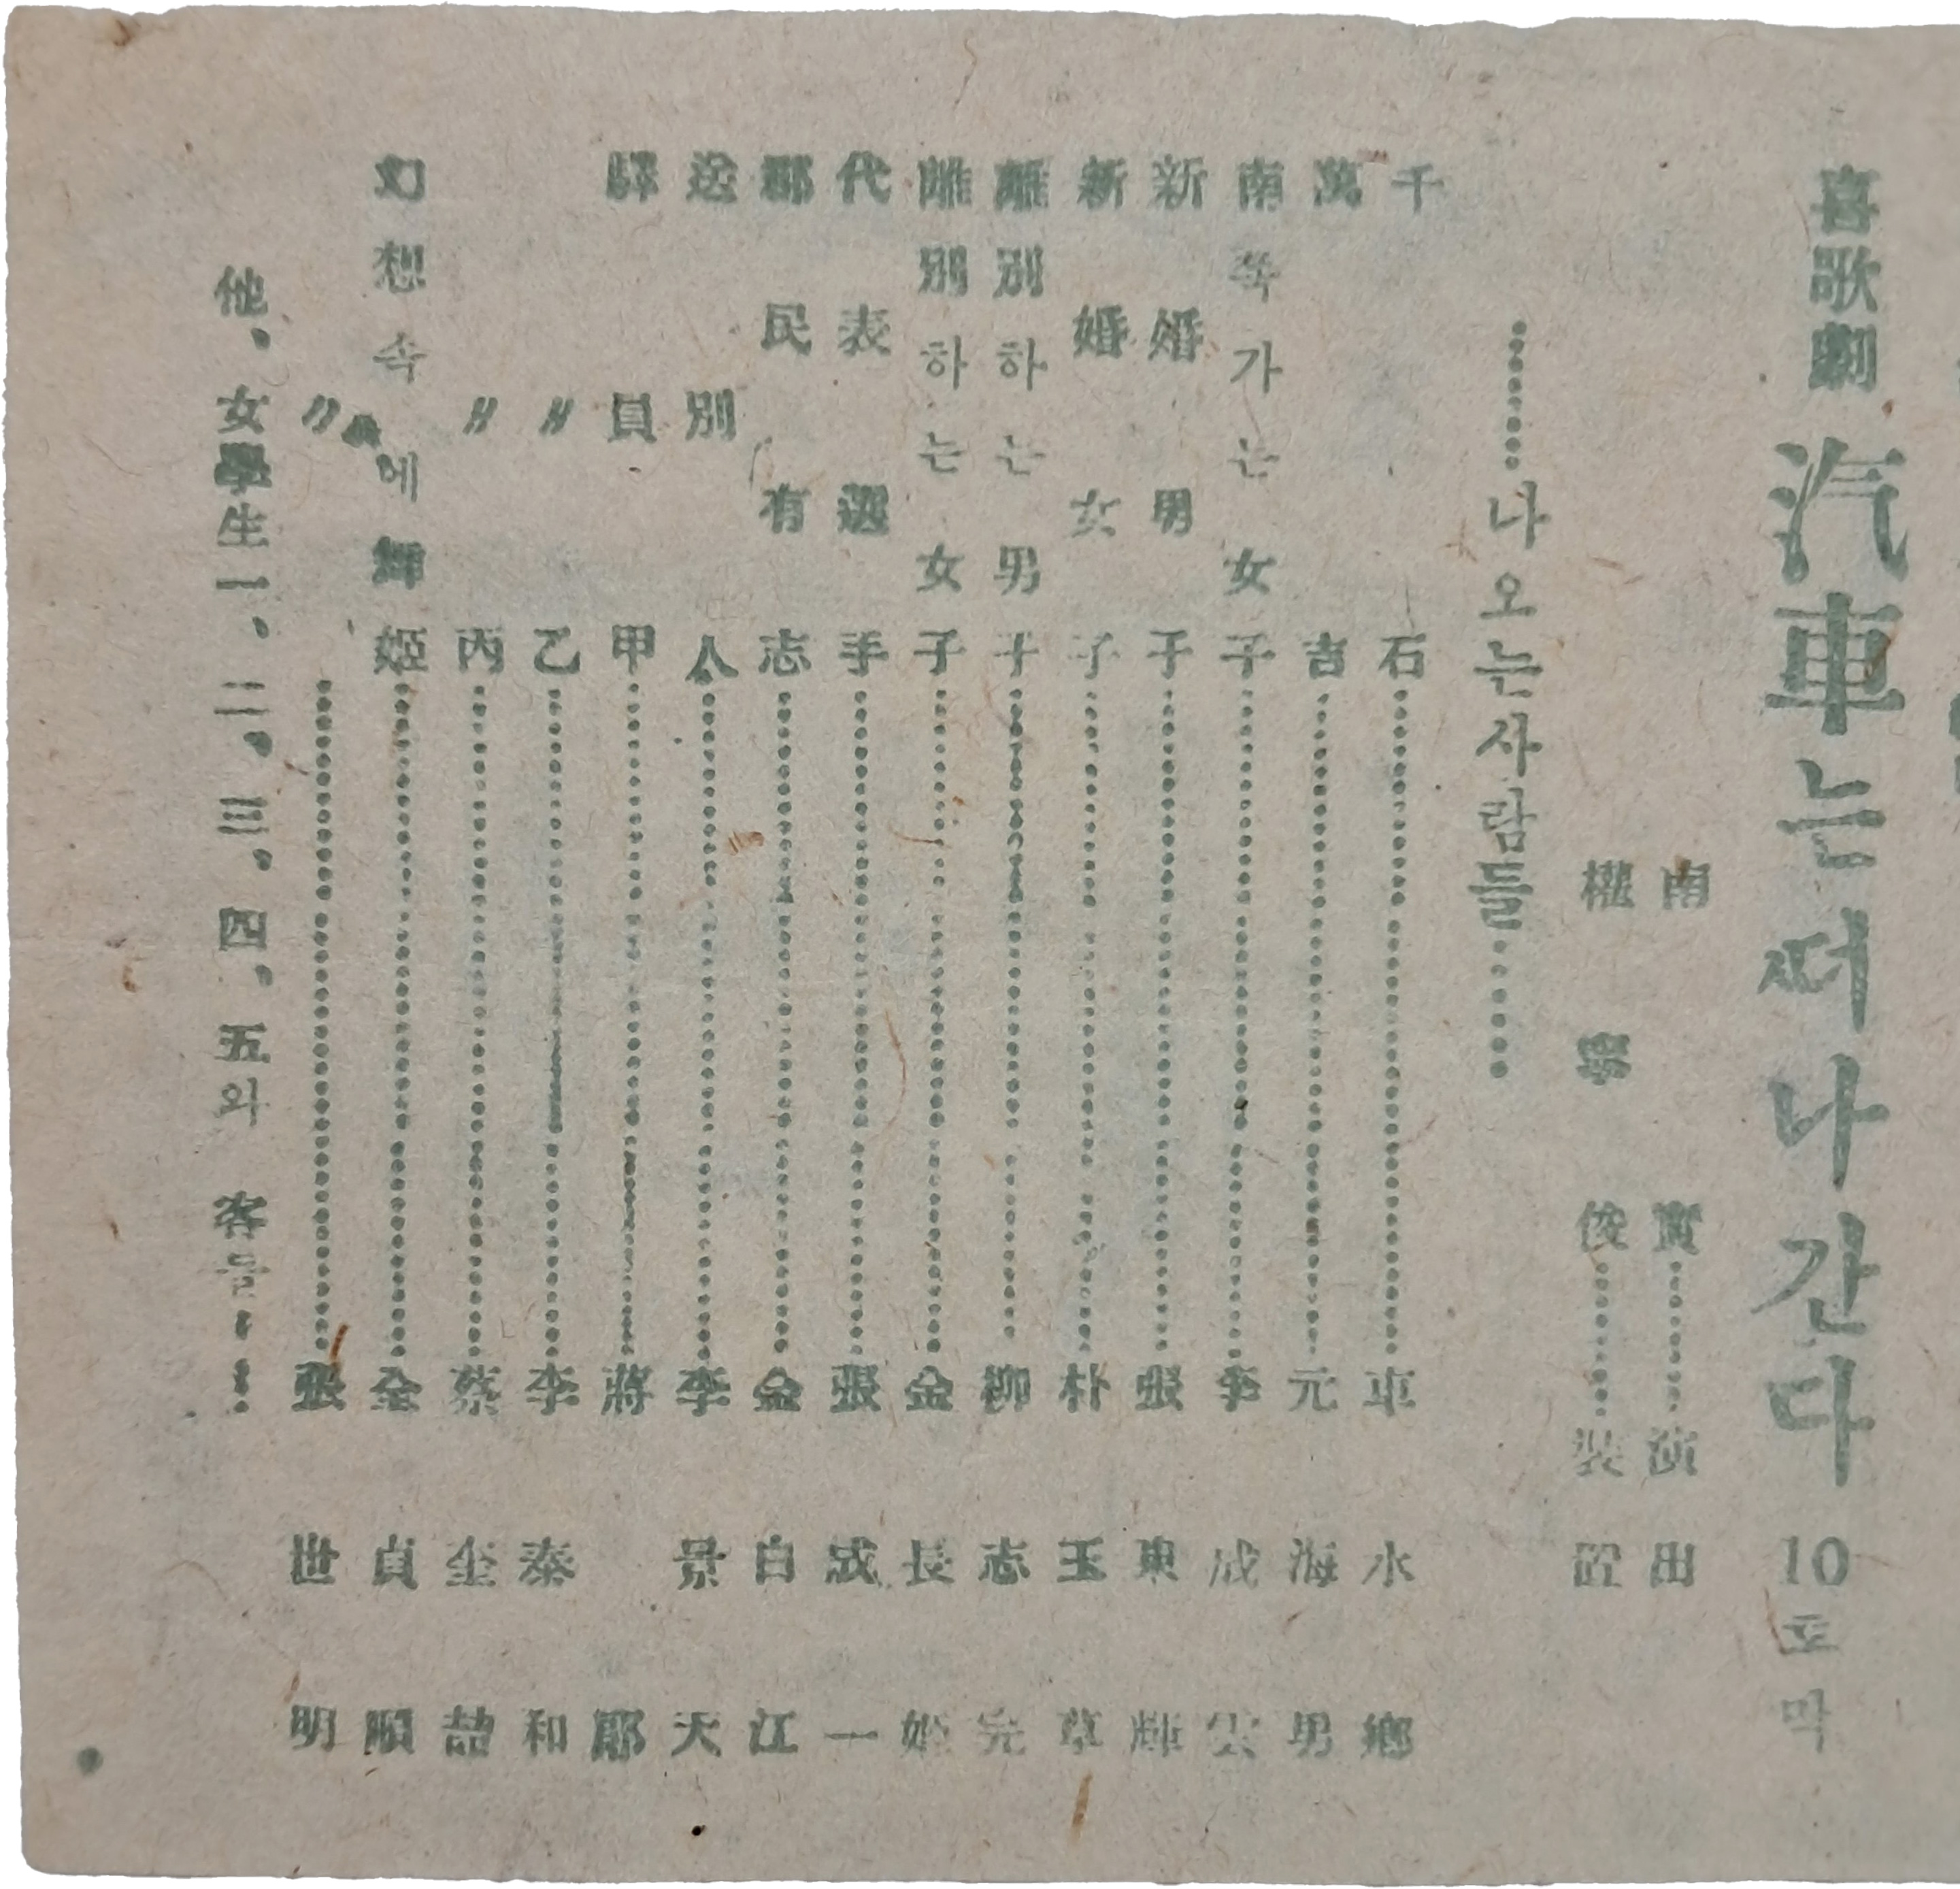 喜歌劇 汽車는ᄯᅥ나간다 10토막
南 實……演出
權寧俊……裝置
……나오는사람들……
千石……車水鄕
萬吉……元海男
南쪽가는女子……李成雲
新婚男子……張東輝
新婚女子……朴玉草
離別하는男子……柳志完
離別하는女子……金長姬
代表選手……張成一
郡民有志……金白江
送別人……李景天
驛員甲……蔣郞
〃乙……李泰和
〃丙……蔡奎喆
幻想속에舞姬……全貞順
〃……張世明
他、女學生一、二、三、四、五와 客들……